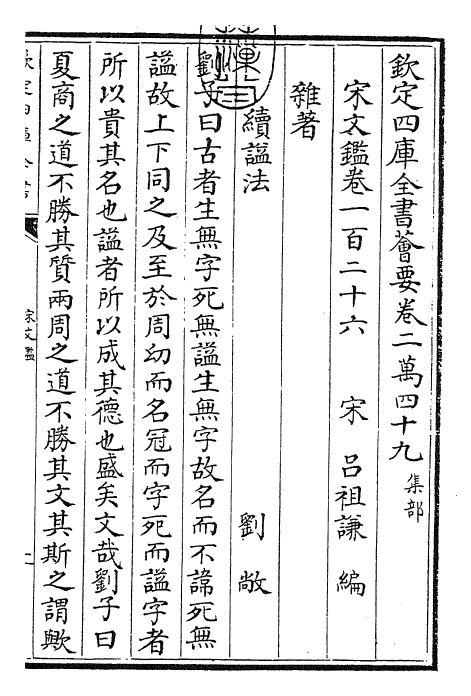 欽定四庫全書薈要卷二萬四十九 集部
宋文鑑卷一百二十六 宋 呂祖謙 編
雜著
續諡法 劉敞
劉子曰古者生無字死無諡生無字故名而不諱死無
諡故上下同之及至於周幼而名冠而字死而諡字者
所以貴其名也諡者所以成其德也盛矣文哉劉子曰
夏商之道不勝其質兩周之道不勝其文其斯之謂歟
宋文鑑